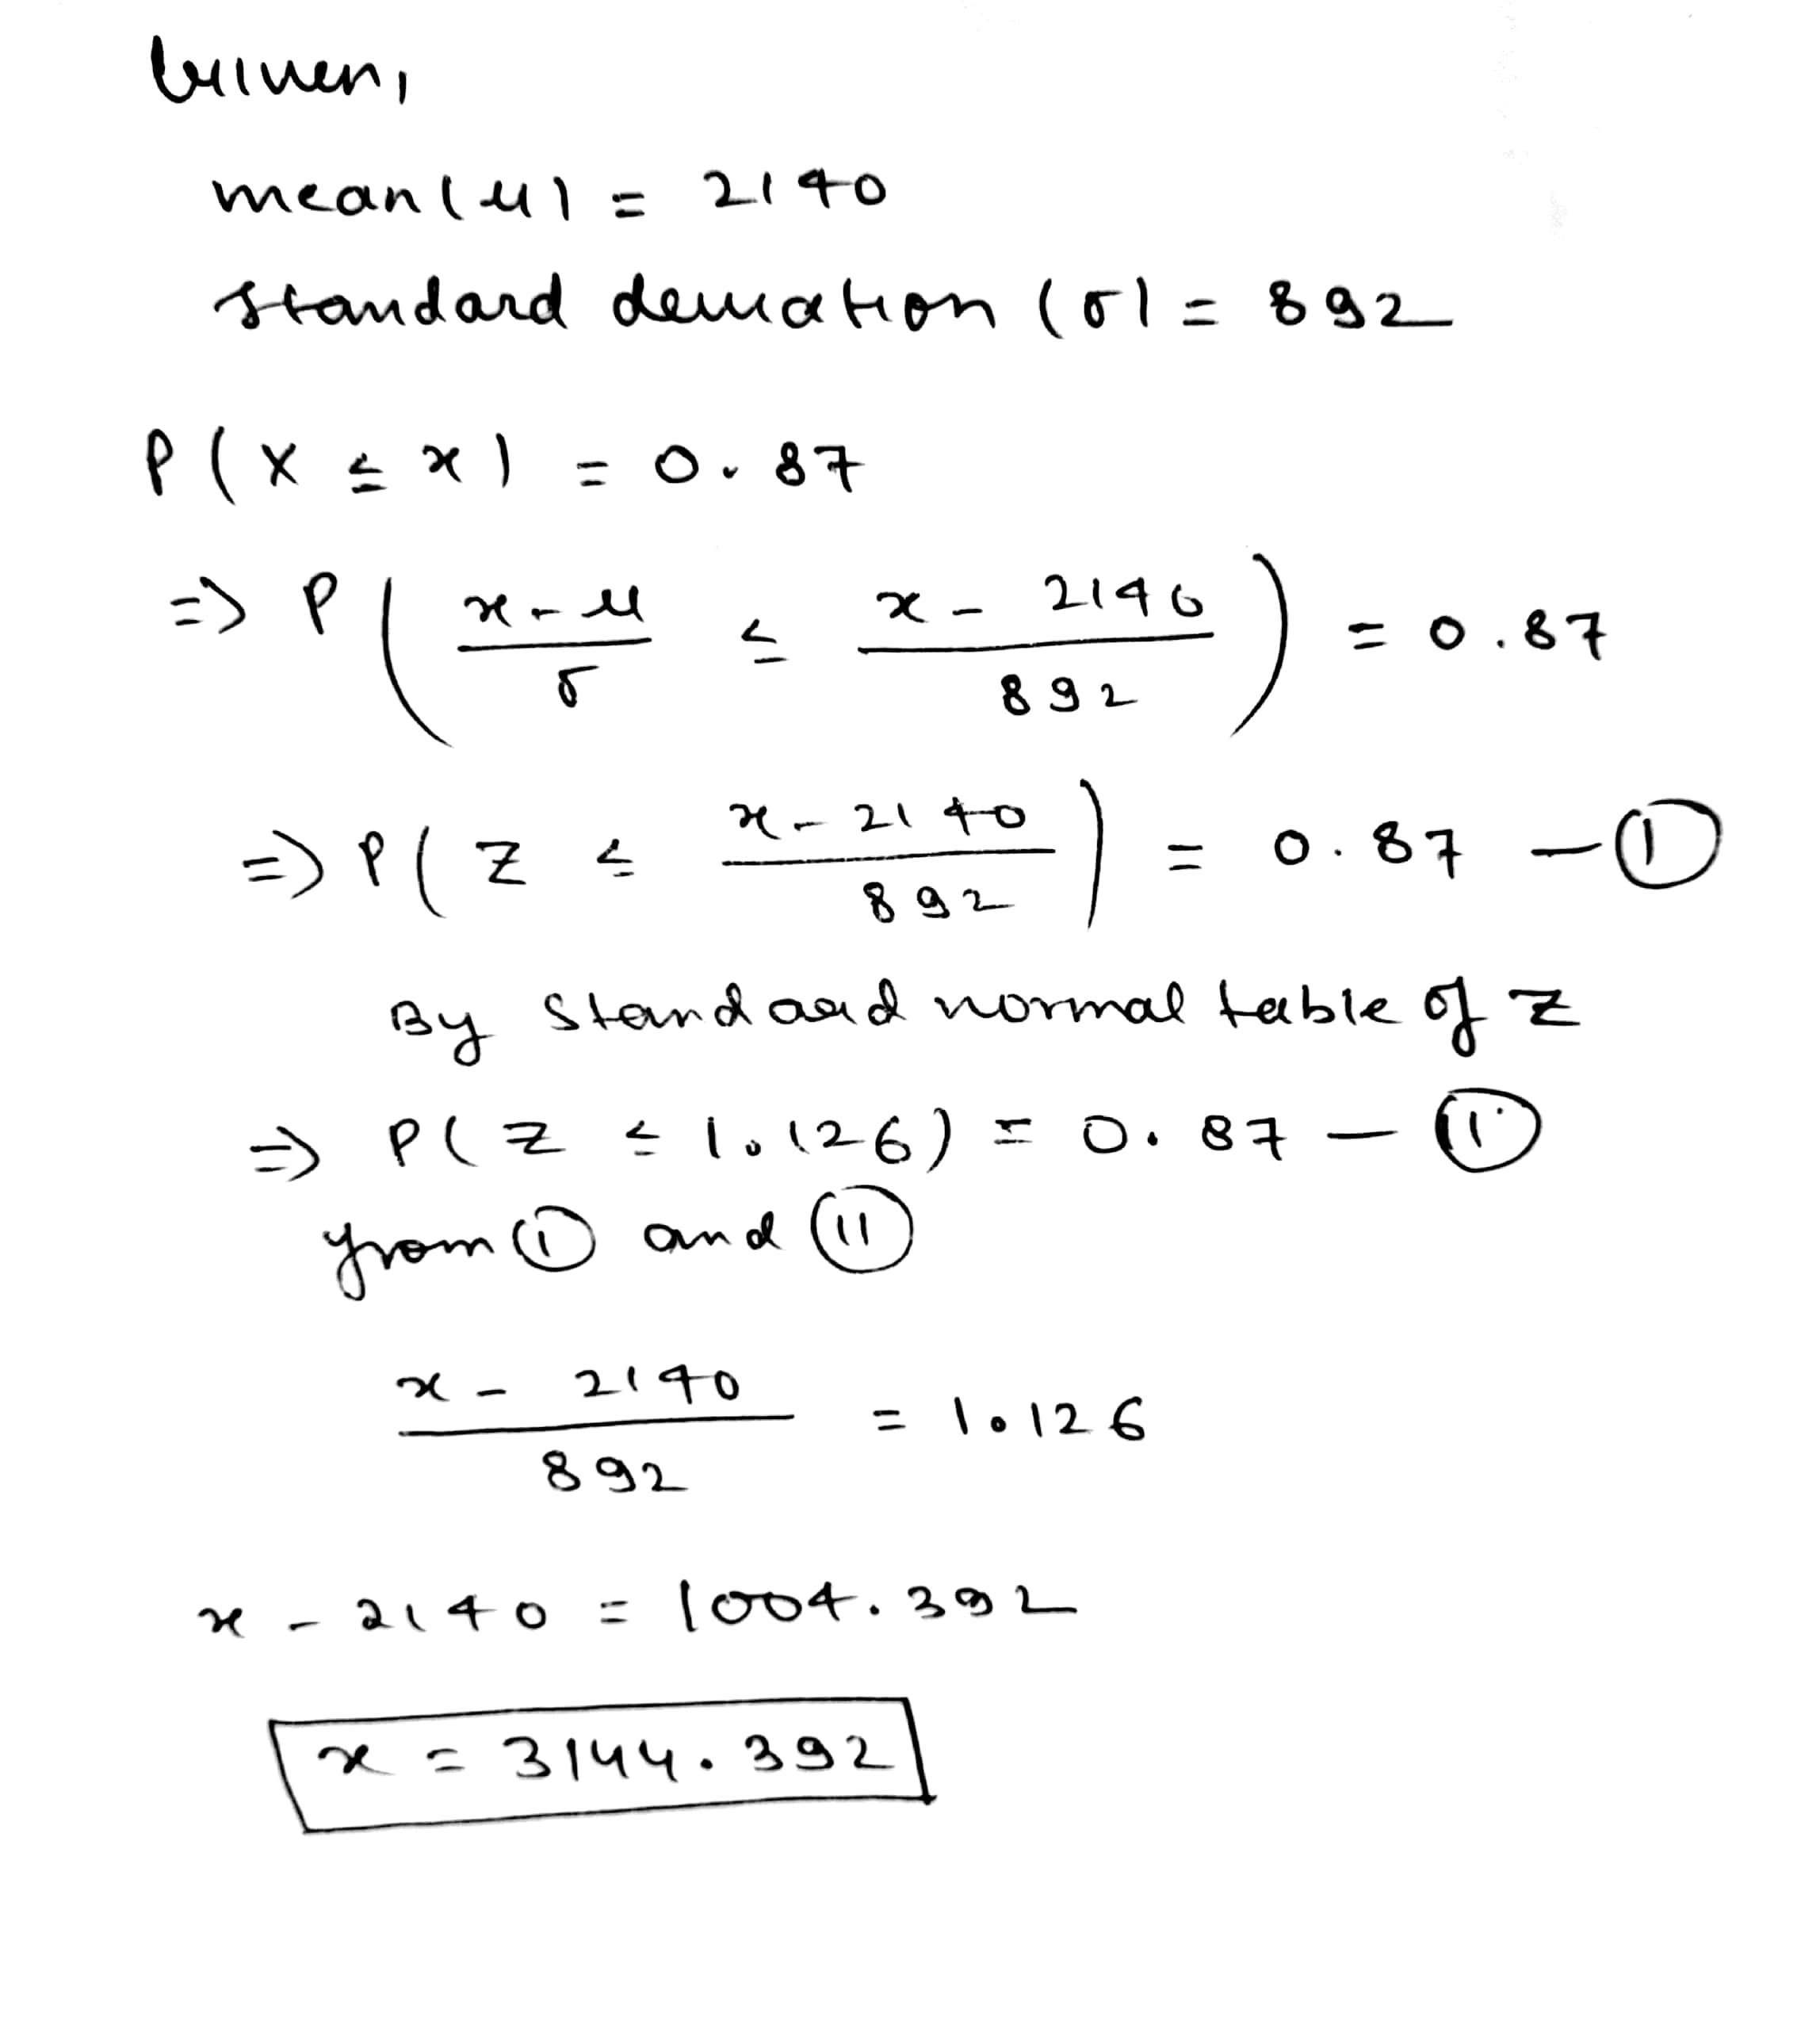 Given,
mean (μ) = 2140
standard deviation (σ) = 892
P(X ≤ x) = 0.87
=> P( (x-μ)/σ ≤ (x - 2140)/892 ) = 0.87
=> P( Z ≤ (x-2140)/892 ) = 0.87 — (i)
By standard normal table of z
=> P(Z ≤ 1.126) = 0.87 — (ii)
from (i) and (ii)
(x - 2140)/892 = 1.126
x - 2140 = 1004.392
x = 3144.392